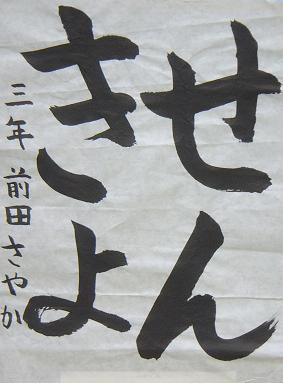 せん
きよ
三年 前田さやか